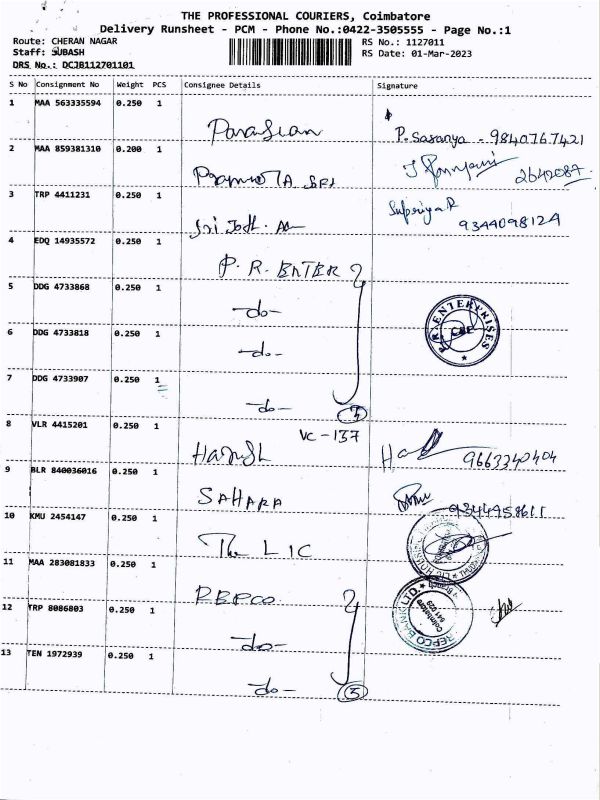 THE PROFESSIONAL COURIERS, Coimbatore
Delivery Runsheet - PCM - Phone No.:0422-3505555 - Page No.:1
Route: CHERAN NAGAR
Staff: SUBASH
DRS No.: DCJB112701101
RS No.: 1127011
RS Date: 01-Mar-2023
S No Consignment No Weight PCS Consignee Details Signature
1 MAA 563335594 0.250 1
P. Saranya - 9840767421
2 MAA 859381310 0.200 1
2642087
3 TRP 4411231 0.250 1 Sri
Supriya R
9344098124
4 EDQ 14935572 0.250 1 P. R. ENTER
5 DDG 4733868 0.250 1 -do-
6 DDG 4733818 0.250 1 -do-
P.R. ENTERPRISES
CBE
7 DDG 4733907 0.250 1 -do- 4
8 VLR 4415201 0.250 1 VC - 137
Harish
9663340404
9 BLR 840036016 0.250 1 SAHARA
9344958611
10 KMU 2454147 0.250 1 The LIC
11 MAA 283081833 0.250 1 REPCO
REPCO BANK LTD.
Coimbatore
641 029
12 TRP 8086803 0.250 1 -do-
13 TEN 1972939 0.250 1 -do- 3